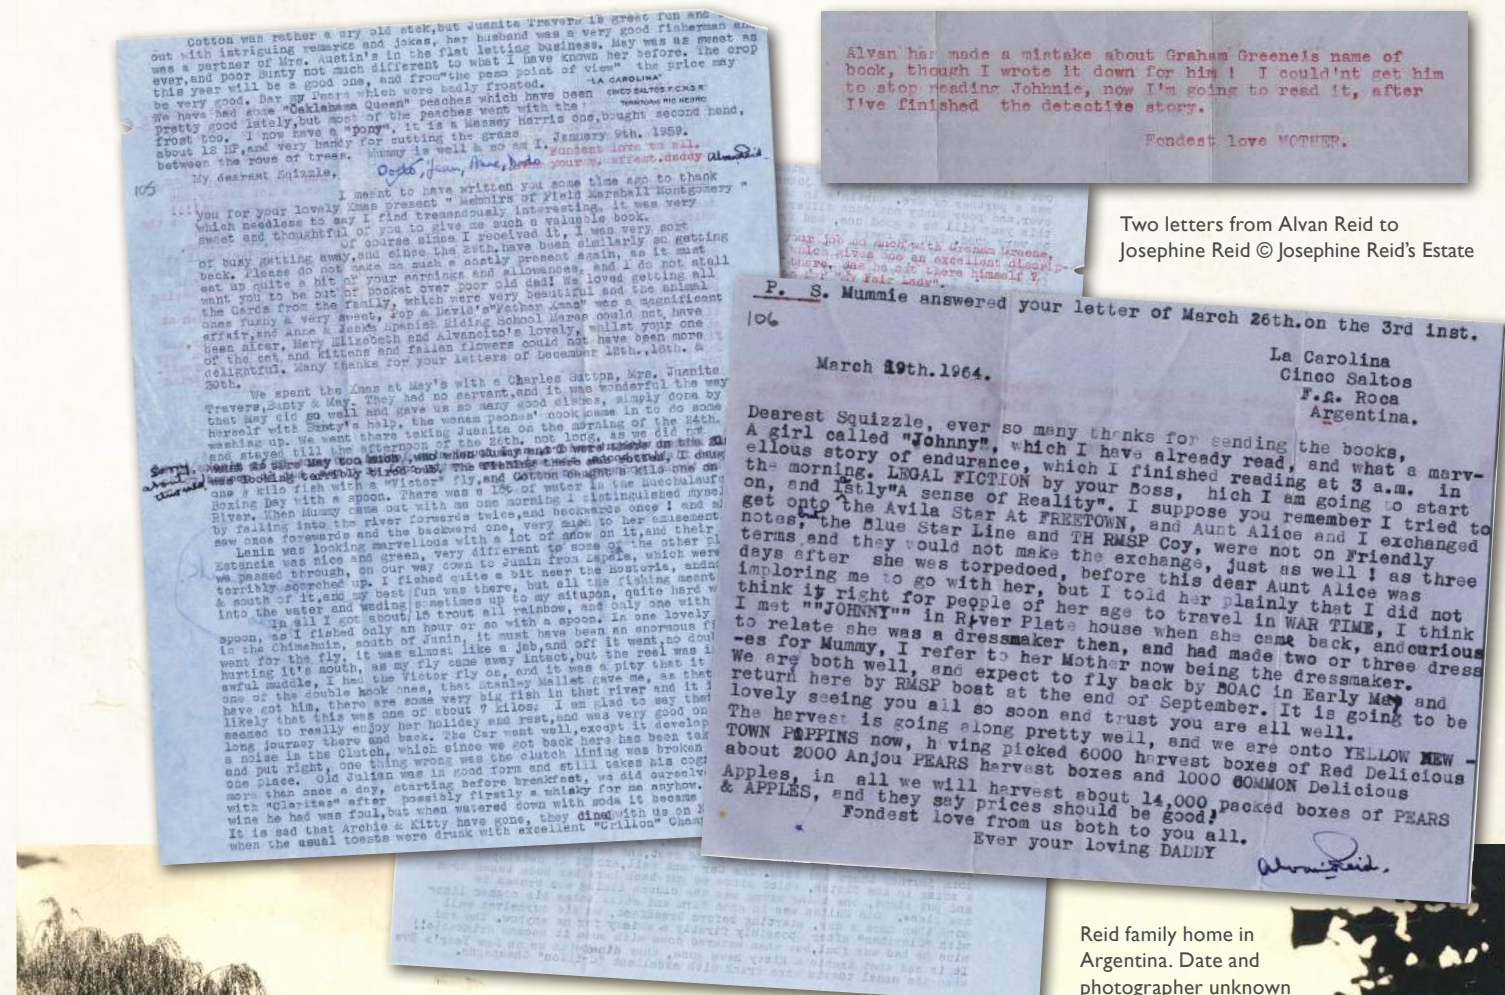 Cotton was rather a dry old stok,but Juanita Travers is great fun and
out with intriguing remarks and jokes, her husband was a very good fisherman and
was a partner of Mrs. Austin's in the flat letting business. May was as sweet as
ever,and poor Bunty not much different to what I have known her before. The crop
this year will be a good one, and from"the peso point of view" the price may
be very good. Bar my Pears which were badly frosted.
"LA CAROLINA"
CINCO SALTOS F.C.N.G.R.
TERRITORIO RIO NEGRO
We have had some "Oaklahama Queen" peaches which have been
pretty good lately,but most of the peaches went with the
frost too. I now have a "pony", it is a Massey Harris one,bought second hand,
about 12 HP,and very handy for cutting the grass
between the rows of trees. Mummy is well & so am I.
January 9th. 1959.
Fondest love to all.
your v. affect.daddy Alvan Reid.
105
My dearest Sqizzle,
I meant to have written you some time ago to thank
you for your lovely Xmas present " Memoirs of Field Marshall Montgomery "
which needless to say I find tremendously interesting. it was very
sweet and thoughtful of you to give me such a valuable book.
Of course since I received it, I was very sort
of busy getting away,and since the 29th.have been similarly so getting
back. Please do not make me such a costly present again, as it must
eat up quite a bit of your earnings and allowances, and I do not atall
want you to be out of pocket over poor old dad! We loved getting all
the Cards from the family, which were very beautiful and the animal
ones funny & very sweet, Pop & Devis's"Father Xmas" was a magnificent
affair,and Anne & Jacks Spanish Riding School Mares could not have
been nicer, Mary Elizabeth and Alvancito's lovely, whilst your one
of the cat and kittens and fallen flowers could not have been more
delightful. Many thanks for your letters of December 12th.,18th. &
30th.
We spent the Xmas at May's with a Charles Sutton, Mrs. Juanita
Travers,Bunty & May. They had no servant,and it was wonderful the way
that May did so well and gave us so many good dishes, simply done by
herself with Bunty's help, the woman peones' cook came in to do some
washing up. We went there taking Juanita on the morning of the 24th.
and stayed till the afternoon of the 26th. not long, as we did not
Sorry
about
this
want to tire May too much ,who when Mummy and I were there on the
was looking terribly tired out. The fishing there
and Cotton caught a kilo one on
one ½ kilo fish with a "Victor" fly,
Boxing Day with a spoon. There was a lot of water in the Huechulaufquen
River. When Mummy came out with me one morning I distinguished mysel
by falling into the river forwards twice,and backwards once ! and al
saw once forwards and the backward one, very much to her amusement
Lanin was looking marvellous with a lot of snow on it,and their
Estancia was nice and green, very different to some of the other pl
we passed through, on our way down to Junin from Zapala, which were
terribly scorched up. I fished quite a bit near the Hosteria,
& south of it,and my best fun was there, but all the fishing meant
into the water and wading sometimes up to my situpon, quite hard w
In all I got about 15 trout all rainbow, and only one with
spoon, as I fished only an hour or so with a spoon. In one lovely
in the Chimehuin, south of Junin, it must have been an enormous fi
went for the fly, it was almost like a jab,and off it went,no doub
hurting it's mouth, as my fly came away intact,but the reel was i
awful muddle, I had the Victor fly on, and it was a pity that it
one of the double hook ones, that Stanley Mallet gave me, as that
have got him, there are some very big fish in that river and it i
likely that this was one of about 7 kilos. I am glad to say that
seemed to really enjoy her holiday and rest,and was very good on
long journey there and back. The Car went well,except it develop
a noise in the Clutch, which since we got back here has been tak
and put right, one thing wrong was the clutch lining was broken
one place. Old Julian was in good form and still takes his cogn
more than once a day, starting before breakfast, we did ourselve
with "Claritas" after possibly firstly a whisky for me anyhow.
wine he had was foul,but when watered down with soda it became
It is sad that Archie & Kitty have gone, they dined with us on N
when the usual toasts were drunk with excellent "Crillon" Champ
Alvan har made a mistake about Graham Greene's name of
book, though I wrote it down for him ! I could'nt get him
to stop reading Johhnie, now I'm going to read it, after
I've finished the detective story.
Fondest love MOTHER.
Two letters from Alvan Reid to
Josephine Reid © Josephine Reid's Estate
your job so much with Graham Greene,
which gives one an excellent descrip-
there. Was he out there himself ?
"My Fair Lady".
P. S. Mummie answered your letter of March 26th.on the 3rd inst.
106
La Carolina
Cinco Saltos
F.G. Roca
Argentina.
March 19th.1964.
Dearest Squizzle, ever so many thanks for sending the books,
A girl called "Johnny", which I have already read, and what a marv-
ellous story of endurance, which I finished reading at 3 a.m. in
the morning. LEGAL FICTION by your Boss, hich I am going to start
on, and lstly"A sense of Reality". I suppose you remember I tried to
get onto the Avila Star At FREETOWN, and Aunt Alice and I exchanged
notes, but the Blue Star Line and TH RMSP Coy, were not on Friendly
terms and they would not make the exchange, just as well ! as three
days after she was torpedoed, before this dear Aunt Alice was
imploring me to go with her, but I told her plainly that I did not
think it right for people of her age to travel in WAR TIME, I think
I met ""JOHNNY"" in River Plate house when she came back, andcurious
to relate she was a dressmaker then, and had made two or three dress
-es for Mummy, I refer to her Mother now being the dressmaker.
We are both well, and expect to fly back by BOAC in Early May and
return here by RMSP boat at the end of September. It is going to be
lovely seeing you all so soon and trust you are all well.
The harvest is going along pretty well, and we are onto YELLOW NEW -
TOWN PIPPINS now, h ving picked 6000 harvest boxes of Red Delicious
about 2000 Anjou PEARS harvest boxes and 1000 COMMON Delicious
Apples, in all we will harvest about 14,000 packed boxes of PEARS
& APPLES, and they say prices should be good!
Fondest love from us both to you all.
Ever your loving DADDY
Alvan Reid.
Reid family home in
Argentina. Date and
photographer unknown